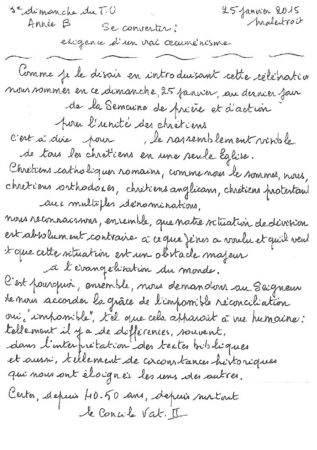 3e dimanche du T.O
25 janvier 2015
Année B
Malestroit
Se convertir :
exigence d'un vrai œcuménisme
Comme je le disais en introduisant cette célébration
nous sommes en ce dimanche, 25 janvier, au dernier jour
de la Semaine de prière et d'action
pour l'unité des chrétiens
c'est à dire pour , le rassemblement visible
de tous les chrétiens en une seule Eglise.
Chrétiens catholiques romains, comme nous le sommes, nous,
chrétiens orthodoxes, chrétiens anglicans, chrétiens protestant
aux multiples dénominations,
nous reconnaissons, ensemble, que notre situation de division
est absolument contraire à ce que Jésus a voulu et qu'il veut
et que cette situation est un obstacle majeur
à l'évangélisation du monde.
C'est pourquoi, ensemble, nous demandons au Seigneur
de nous accorder la grâce de l'impossible réconciliation
oui, "impossible", tel que cela apparaît à vue humaine :
tellement il y a de différences, souvent,
dans l'interprétation des textes bibliques
et aussi, tellement de circonstances historiques
qui nous ont éloignés les uns des autres.
Certes, depuis 40.50 ans, depuis surtout
le Concile Vat. II